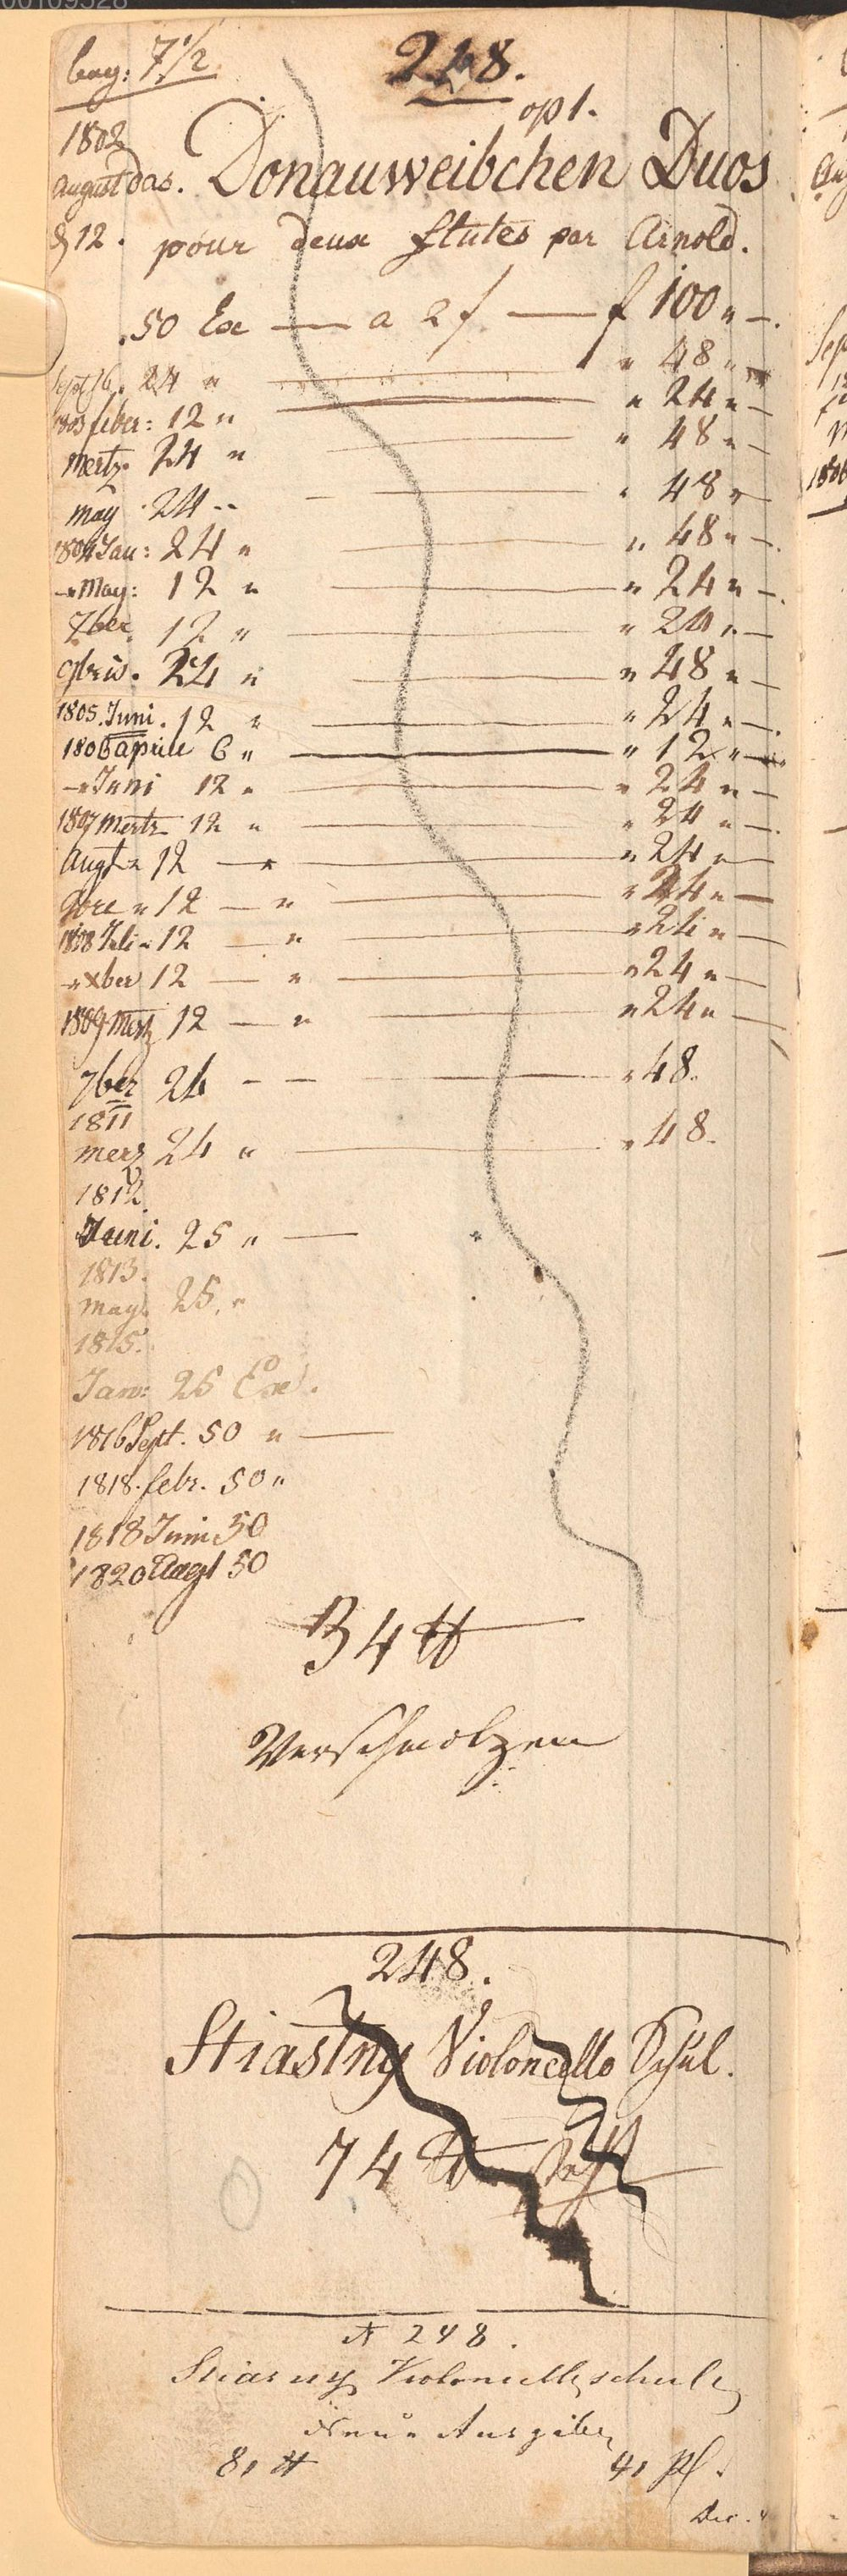 bog: 7 1/2
248.
op 1.
1802
August das. Donauweibchen Duos
d 12. pour deux flutes par Arnold.
50 Ex — a 2 f — f 100 " —.
Septb. 24 " — " 48 " —
1803 feber: 12 " — " 24 " —
Mertz. 24 " — " 48 " —
May 24 " — " 48 "
1804 Jan: 24 " — " 48 " —.
— " May: 12 " — " 24 " —.
7ber. 12 " — " 24 " —
9bris. 24 " — " 48 " —
1805. Juni. 12 " — " 24 " —.
1806 aprill 6 " — " 12 " —
— " Juni 12 " — " 24 " —
1807 Mertz 12 " — " 24 " —.
Augt " 12 — " — " 24 " —
9bre " 12 — " — " 24 " —
1808 Juli " 12 — " — " 24 " —
— " xber 12 — " — " 24 " —
1809 Mertz 12 — " — " 24 " —
7ber 24 — — " 48.
1811
merz 24 " — " 48.
1812.
Juni. 25 " —
1813.
may. 25. "
1815.
Jan: 25 Ex.
1816 Sept. 50 " —
1818. febr. 50 "
1818 Juni 50
1820 Augt 50
34 ℔
Verschmolzen
248.
Stiastny Violoncello Schul.
74 ℔
N 248.
Stiasny Violoncellschule
Neue Ausgabe
81 ℔ 41 Pl.
Dec.